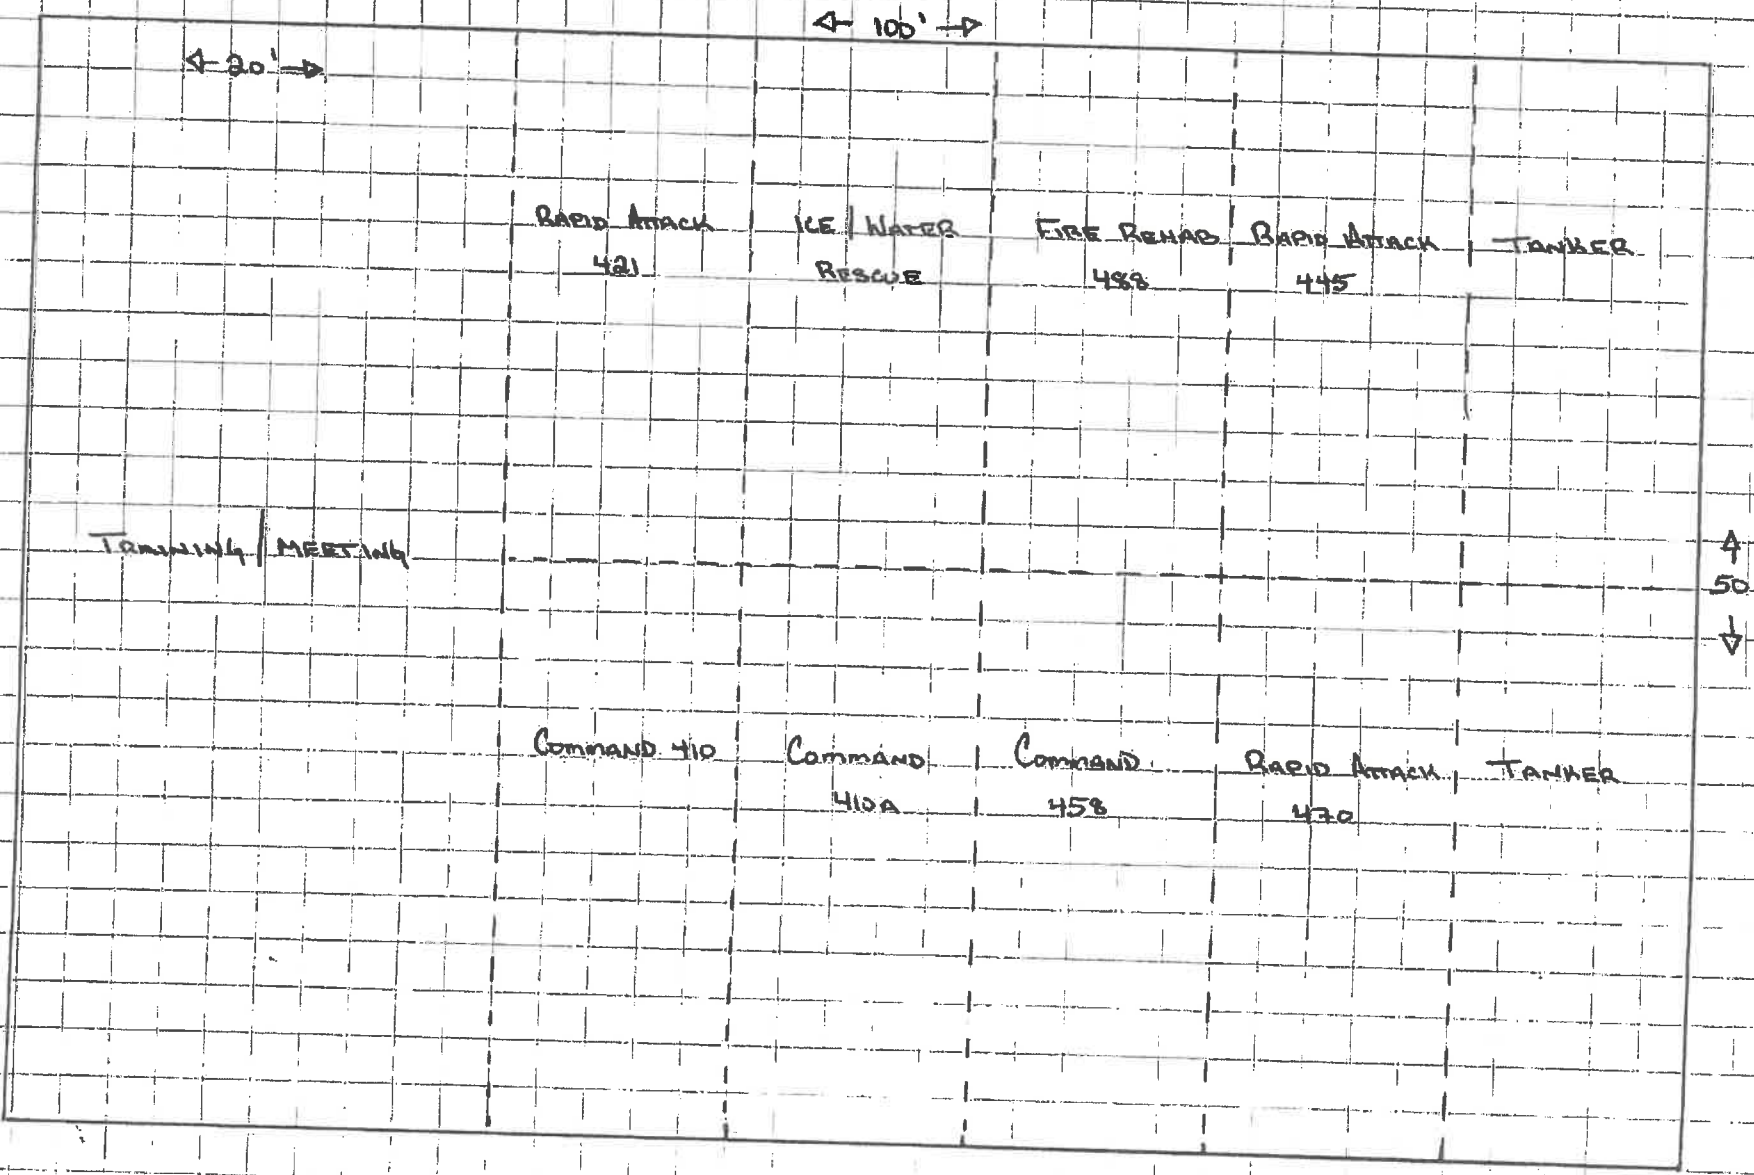 100'
20'
RAPID ATTACK
421
ICE/WATER
RESCUE
FIRE REHAB
488
RAPID ATTACK
445
TANKER
TRAINING/MEETING
50
COMMAND 410
COMMAND
410A
COMMAND
458
RAPID ATTACK
470
TANKER